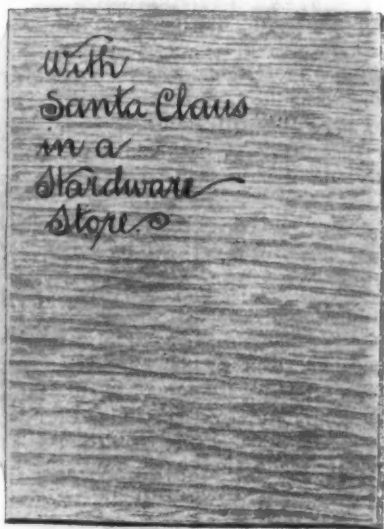 With
Santa Claus
in a
Hardware
Store.